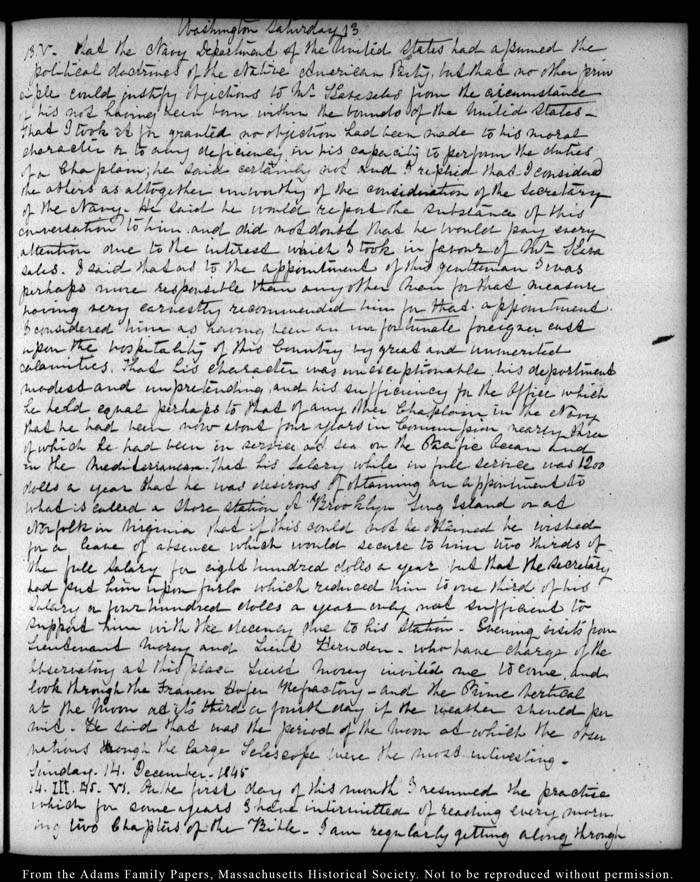 Washington Saturday 13
13. V. that the Navy Department of the United States had assumed the
political doctrines of the Native American Party, but that no other prin
ciple could justify objections to Mr. from the circumstance
of his not having been born within the bounds of the United States –
that I took it for granted no objection had been made to his moral
character or to any deficiency in his capacity to perform the duties
of a Chaplain; he said certainly not and I replied that I considered
the others as altogether unworthy of the consideration of the Secretary
of the Navy – He said he would report the substance of this
conversation to him and did not doubt that he would pay every
attention due to the interest which I took in favour of Mr
sales. I said that as to the appointment of this gentleman I was
perhaps more responsible than any other man for that measure
having very earnestly recommended him for that appointment.
I considered him as having been an unfortunate foreigner cast
upon the hospitality of this Country by great and unmerited
calamities. That his character was unexceptionable, his deportment
modest and unpretending, and his sufficiency for the Office which
he held equal perhaps to that of any other Chaplain in the Navy
that he had been now about four years in Commission nearly three
of which he had been in service at sea on the Pacific Ocean and
in the Mediterranean. That his salary while in full service was 1200
dolls a year that he was desirous of obtaining an appointment to
what is called a Shore station at Brooklyn Long Island or at
Norfolk in Virginia that if this could not be obtained he wished
for a leave of absence which would secure to him two thirds of
the full salary for eight hundred dolls a year but that the Secretary
had put him upon furlo which reduced him to one third of his
salary or four hundred dolls a year only not sufficient to
support him with the decency due to his station – Evening visits from
Lieutenant Morey and Lieut Hernden – who have charge of the
Observatory at this place Lieut Morey invited me to come and
look through the Frauen Hofer Refractory – and the Prime Vertical
at the Moon at its third or fourth day if the weather should per
mit – He said that was the period of the Moon at which the obser
vations through the large Telescope were the most interesting –
Sunday. 14. December. 1845
14. III. 45. VI. On the first day of this month I resumed the practice
which for some years I have intermitted of reading every morn
ing two Chapters of the Bible – I am regularly getting along through
From the Adams Family Papers, Massachusetts Historical Society. Not to be reproduced without permission.